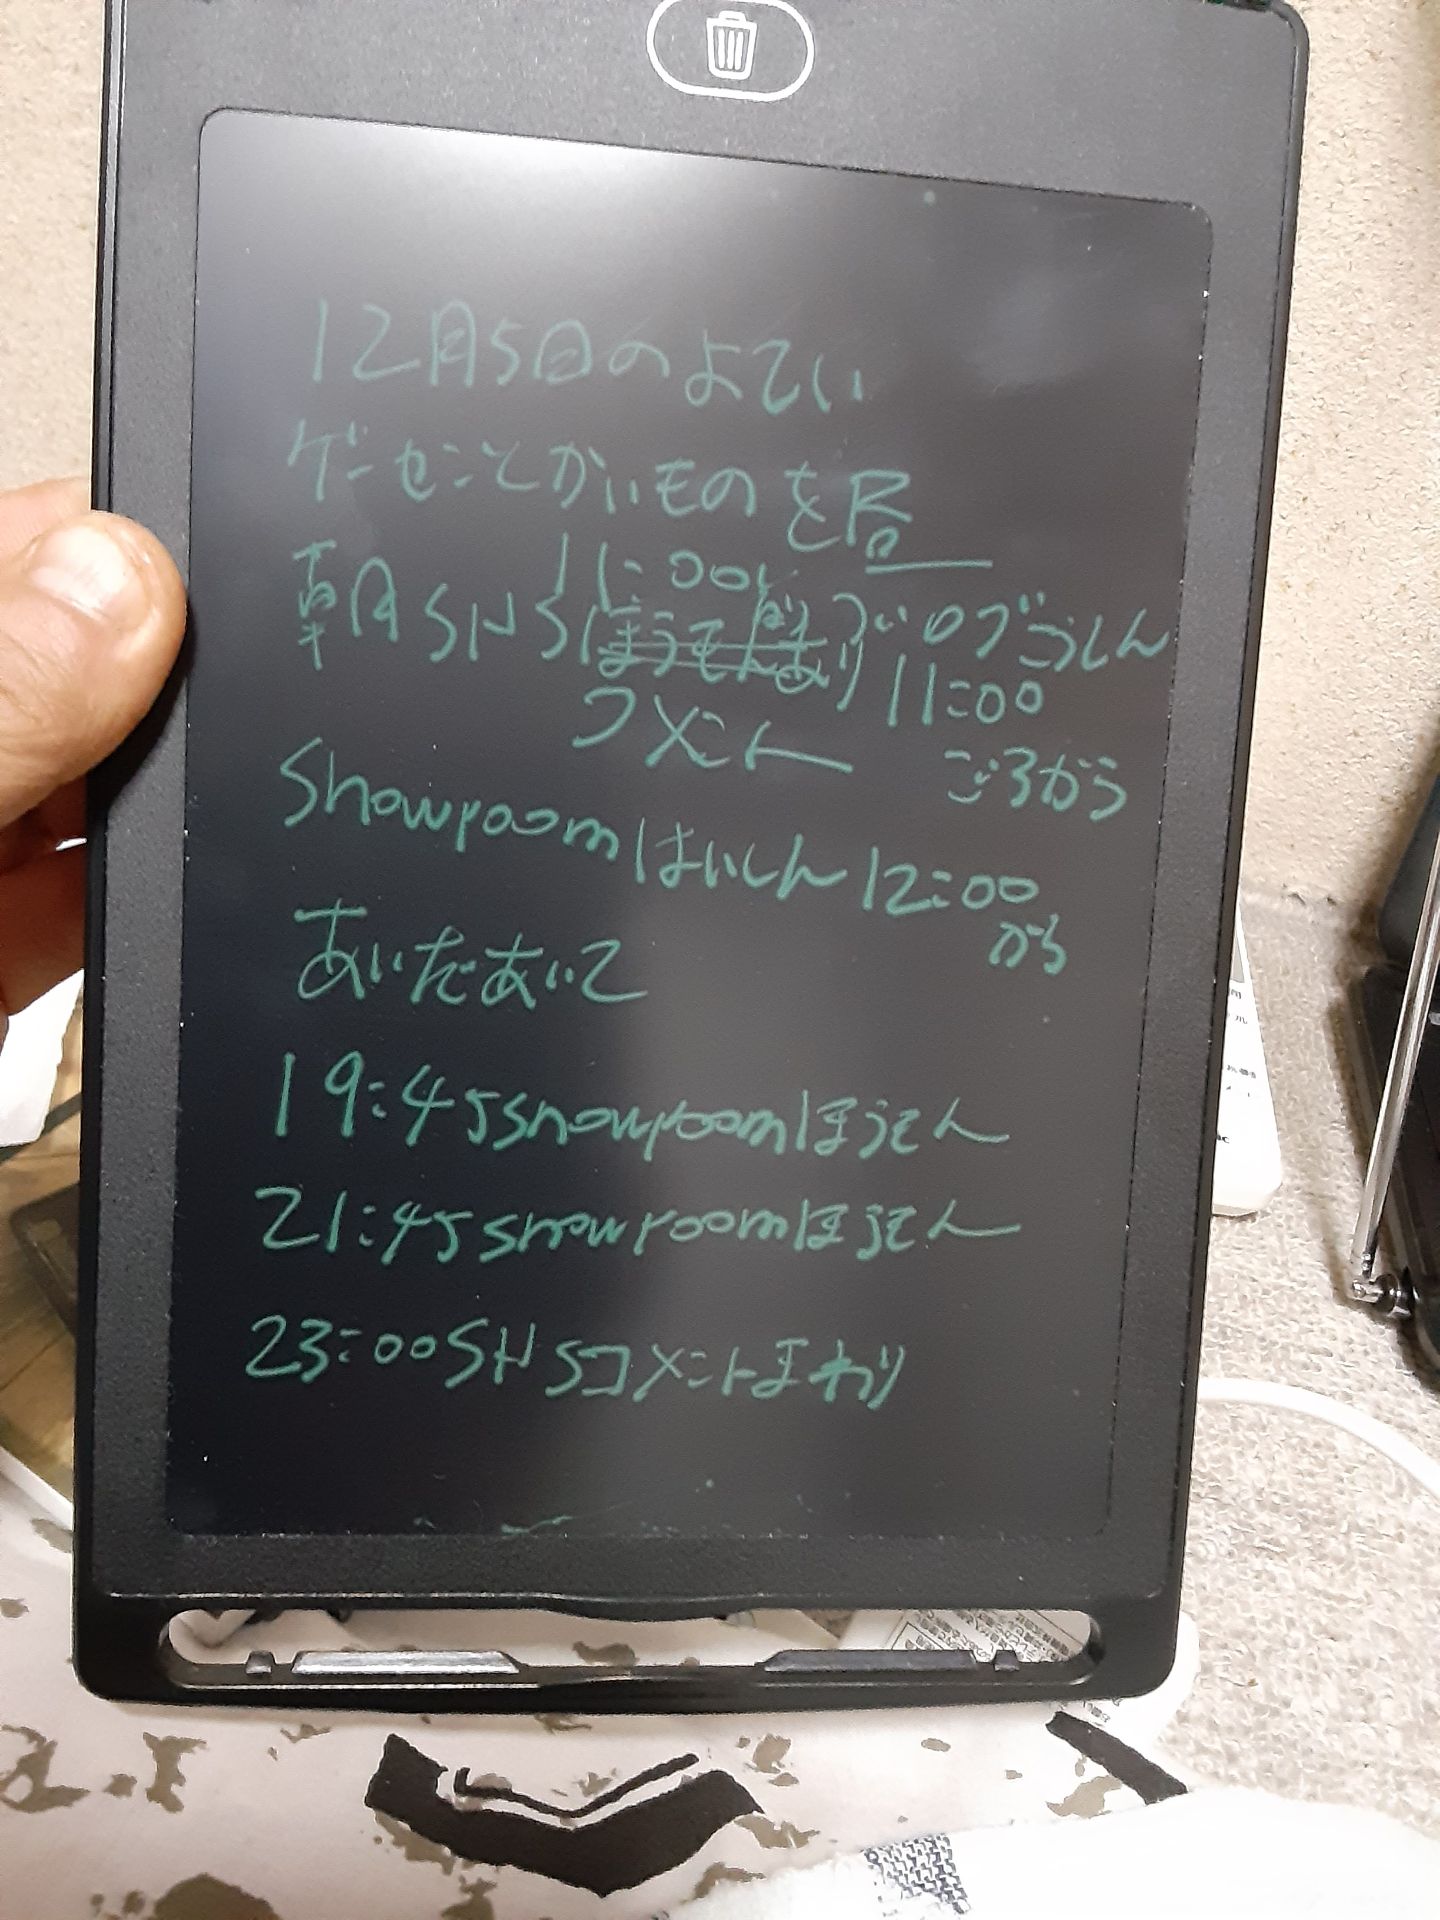 12月5日のよてい
ゲーセンとかいものを昼
11:00
朝SNS ブログこうしん
コメント 11:00
ごろから
Showroomはいしん12:00
から
あいだあいて
19:45showroomほうもん
21:45showroomほうもん
23:00SNSコメントまわり